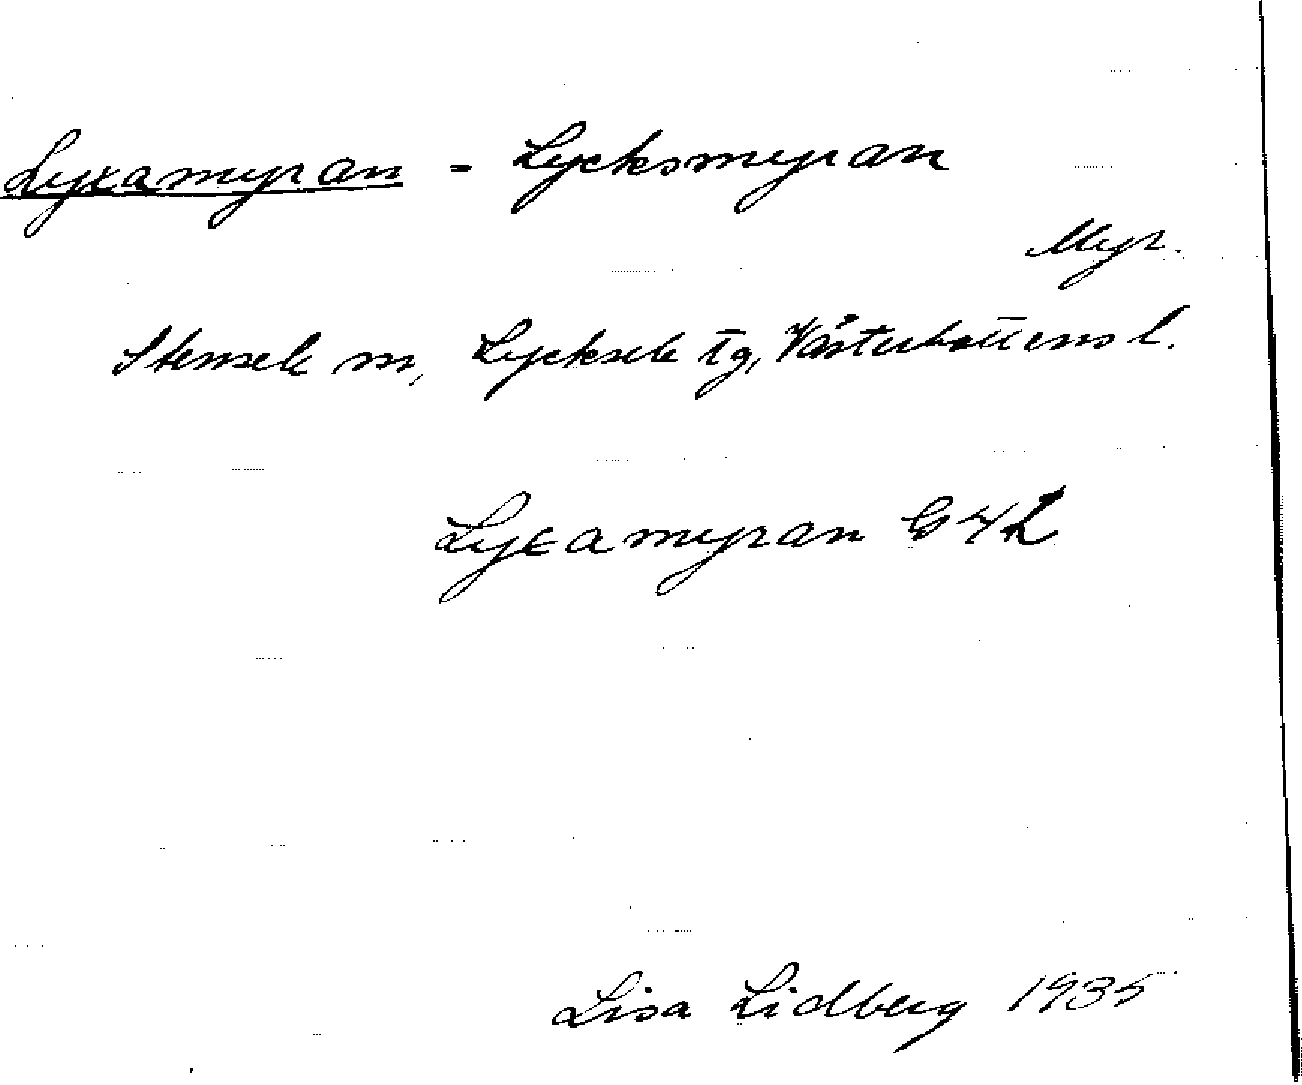 Lyxamyran - Lycksmyran
Myr.
Stensele sn, Lycksele tg, Västerbottens l.
Lyxamyran G4h
Lisa Lidberg 1935